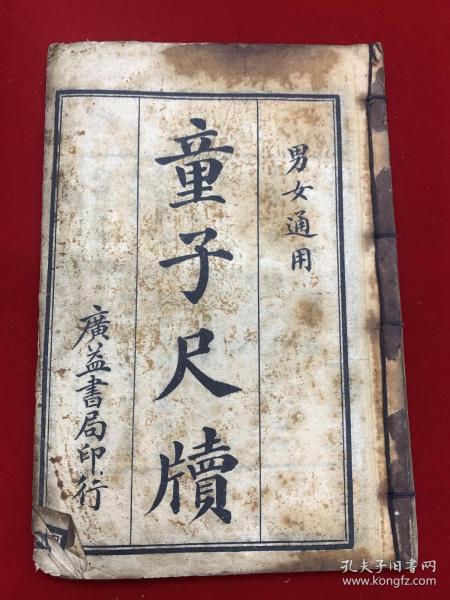 男女通用
童子尺牘
廣益書局印行
孔夫子旧书网
www.kongfz.com